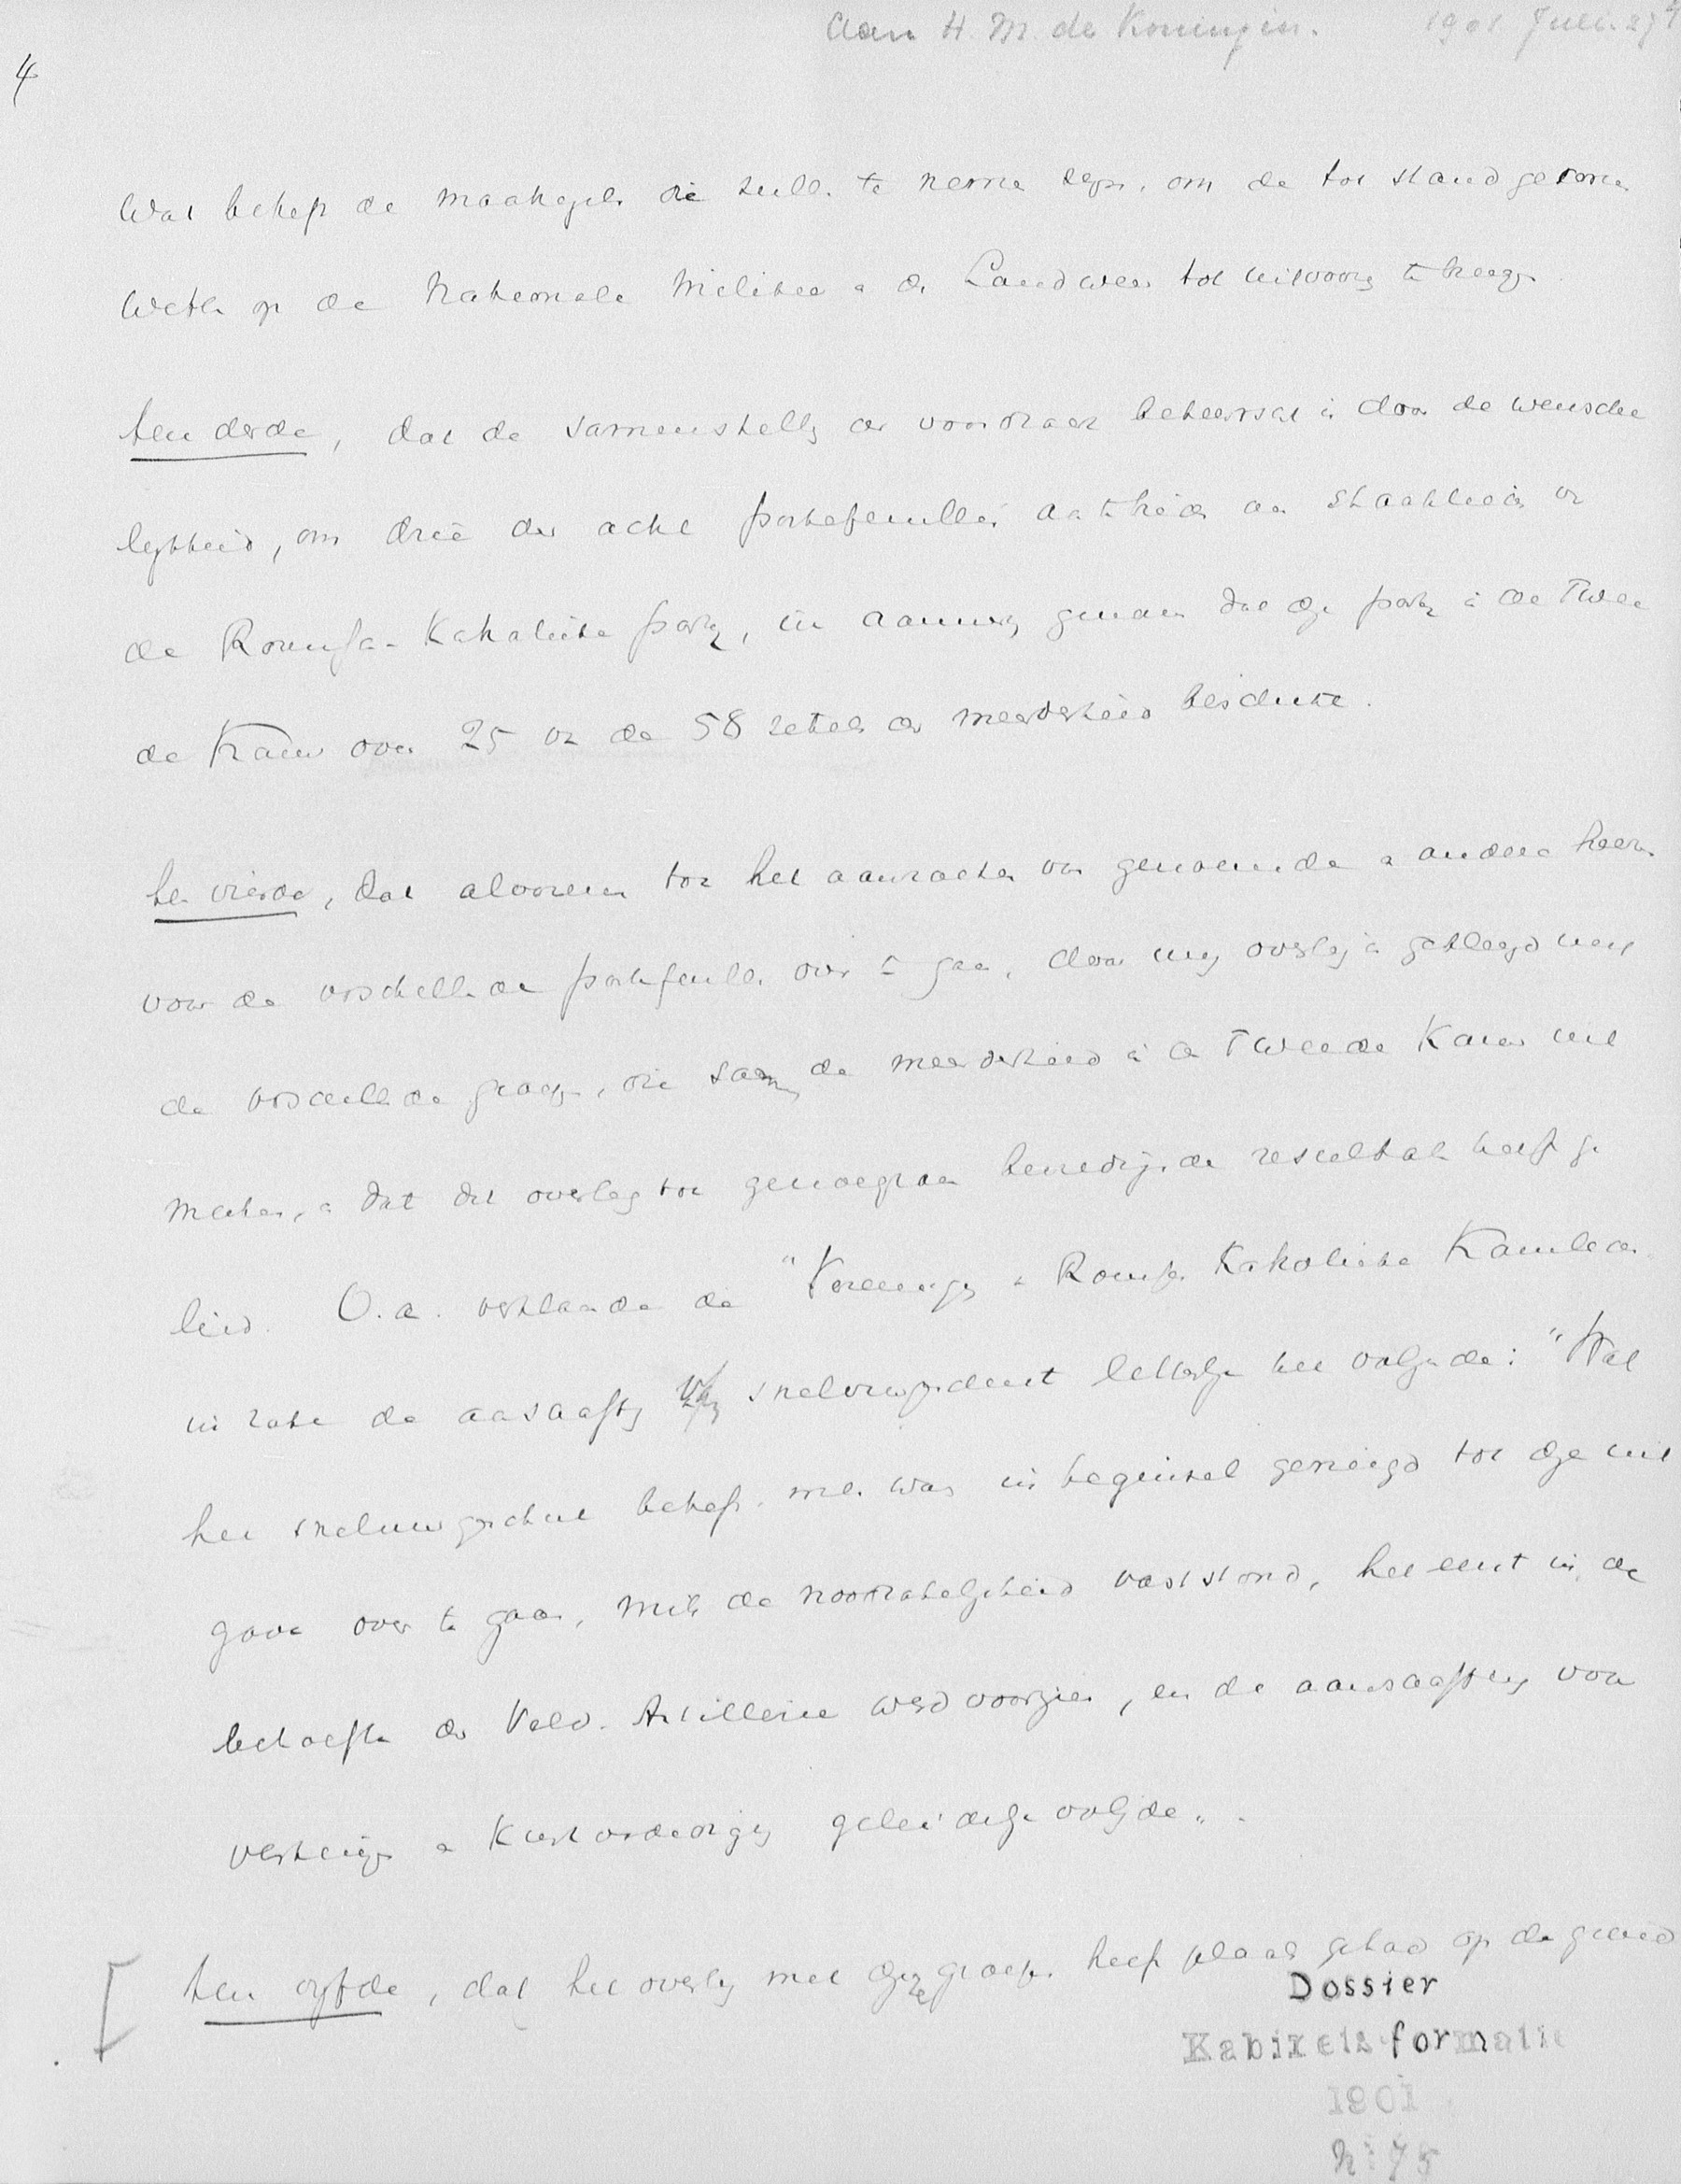 Aan H. M. de Koningin. 1901 Juli 27
4
Wat betreft de maatregelen die zullen te nemen zyn, om de tot stand gekomen
Wetten op de Nationale Militie en de Landweer tot uitvoering te brengen.
ten derde, dat de samenstelling er voorts zeer beheerscht is door de wensche
lykheid, om drie der acht portefeuilles aan te bieden aan Staatslieden van
de Roomsch-Katholieke party, in aanmerking genomen dat deze party in de Twee
de Kamer over 25 van de 58 zetels der meerderheid beschikte.
ten vierde, dat alvorens tot het aanzoeken van genoemde en andere heeren
voor de verschillende portefeuilles over te gaan, door my overleg is gepleegd met
de verschillende groepen, die samen de meerderheid in de Tweede Kamer uit
maken, en dat dit overleg tot genoegzaam bevredigende resultaten heeft ge
leid. O.a. verklaarde de "Vereeniging van Roomsch Katholieke Kamerleden
in zake de aanschaffing van snelvuurgeschut letterlyk het volgende: "Wat
het snelvuurgeschut betreft, men was in beginsel geneigd tot deze uit
gave over te gaan, mits de noodzakelykheid vaststond, het eerst in de
behoefte der Veld-Artillerie werd voorzien, en de aanschaffing voor
vestings en Kustverdediging geleidelyk volgde".
[ ten vyfde, dat het overleg met deze groepen heeft plaats gehad op de grond
Dossier
Kabinetsformatie
1901
n: 75